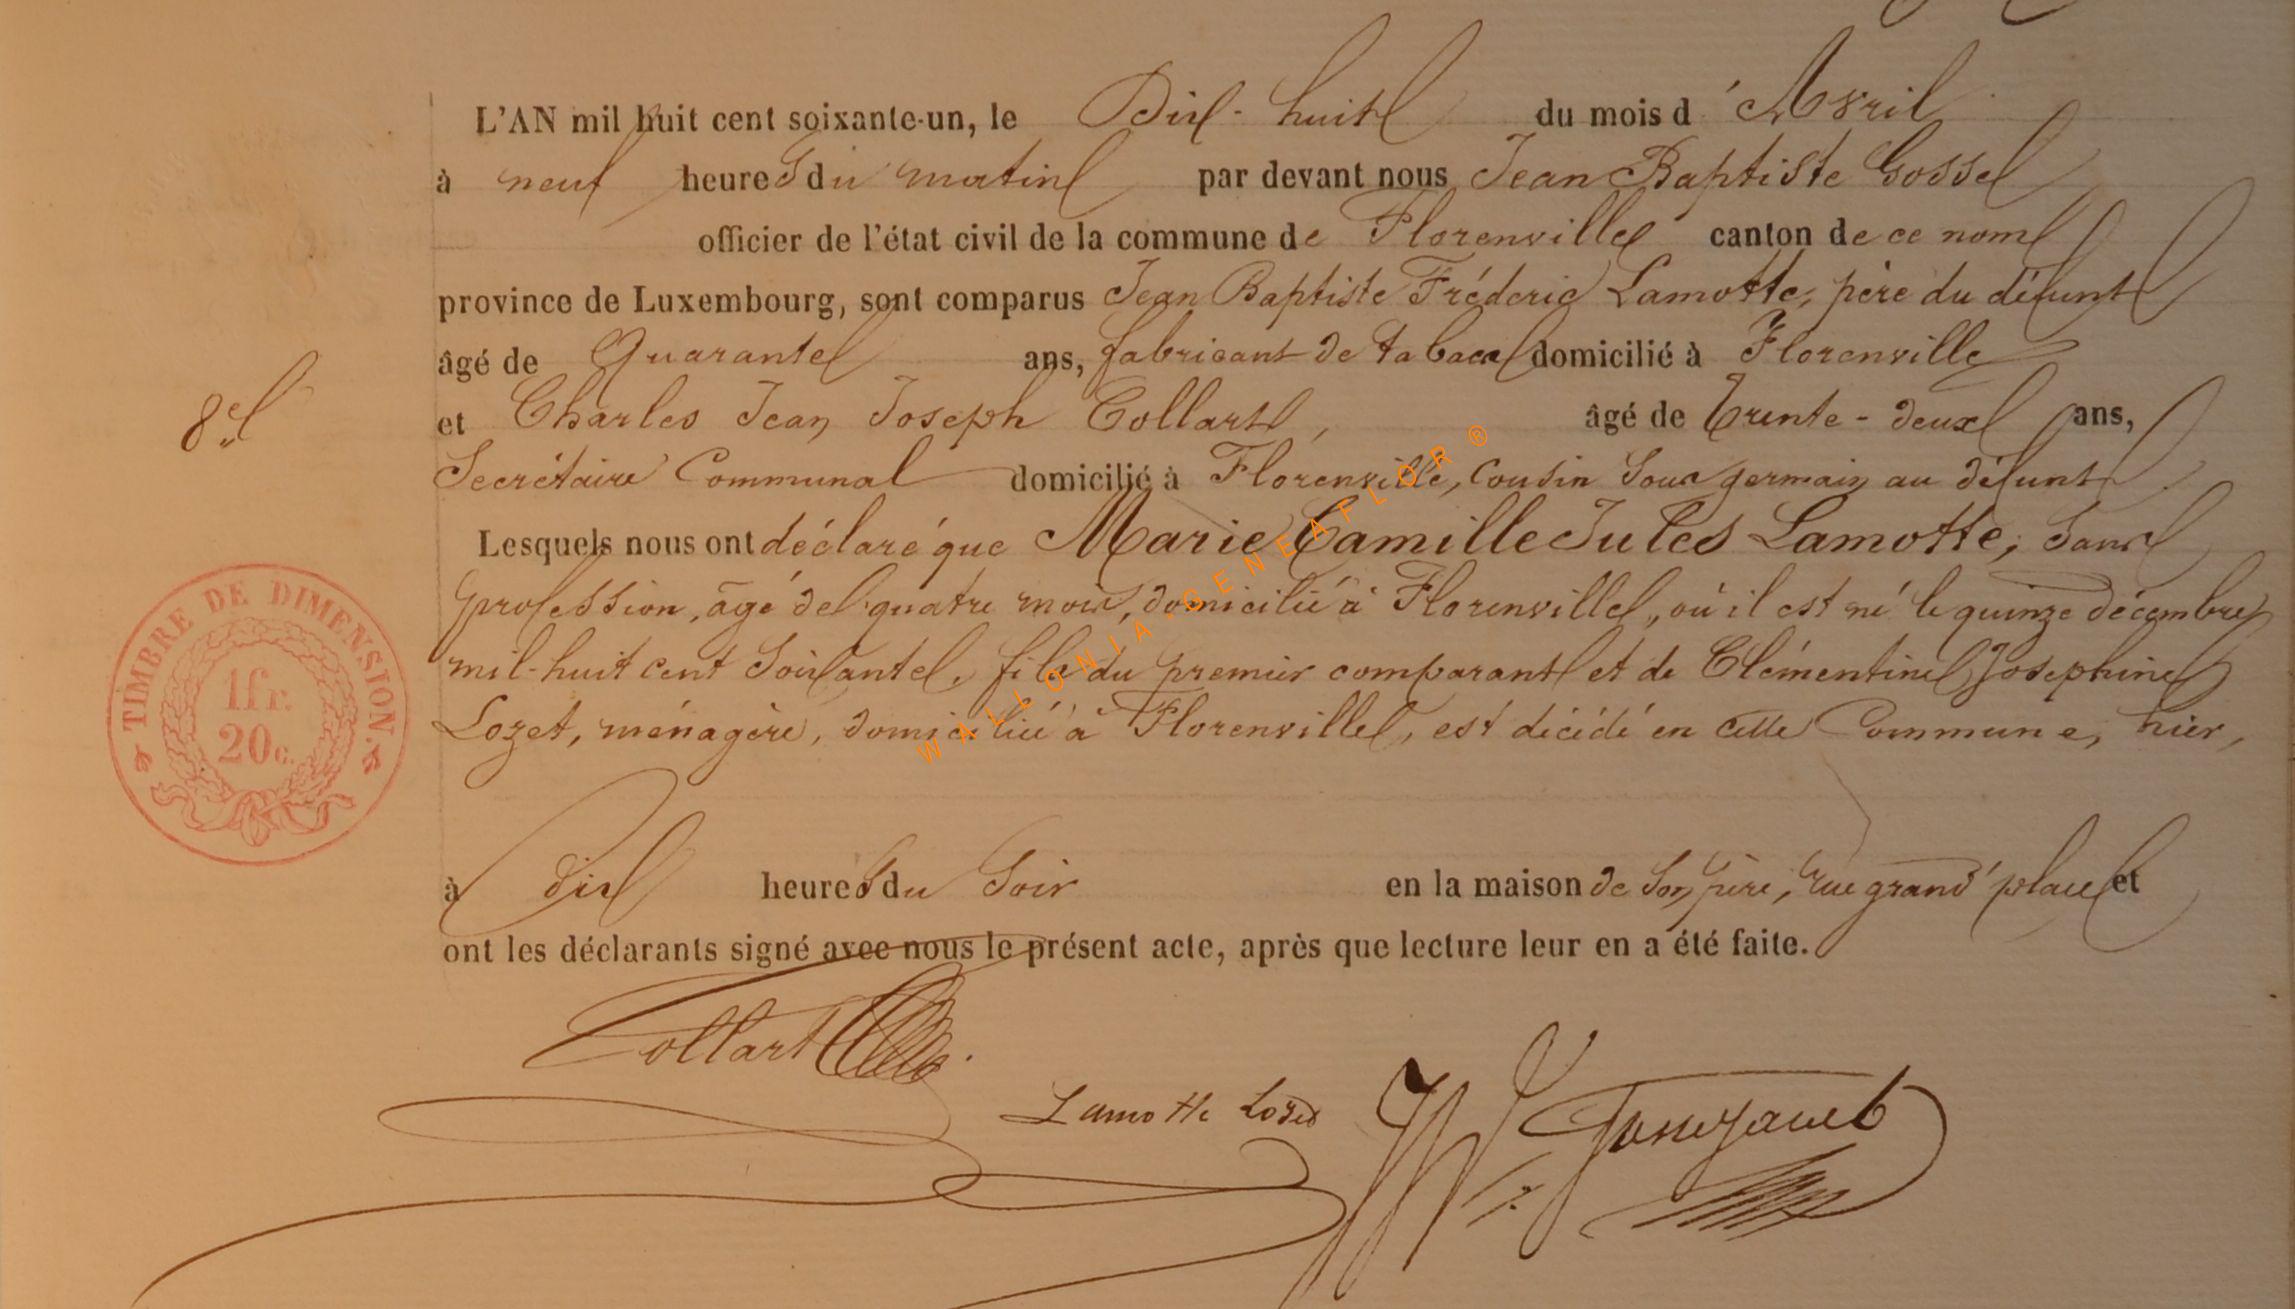 L'AN mil huit cent soixante-un, le Dix-huit du mois d'Avril
à neuf heures du matin par devant nous Jean Baptiste Gosse
officier de l'état civil de la commune de Florenville canton de ce nom
province de Luxembourg, sont comparus Jean Baptiste Fréderic Lamotte, père du défunt
âgé de Quarante ans, fabricant de tabac domicilié à Florenville
et Charles Jean Joseph Collart, âgé de trente-deux ans,
8e
Secrétaire Communal domicilié à Florenville, Cousin sous germain au défunt
Lesquels nous ont déclaré que Marie Camille Jules Lamotte, sans
profession, agé de quatre mois, domicilié à Florenville, où il est né le quinze décembre
mil-huit cent soixante, fils du premier comparant et de Clémentine Josephine
Lozet, ménagère, domiciliée à Florenville, est décédé en cette Commune, hier,
TIMBRE DE DIMENSION
1fr.
20c.
WALLONIA-GENEAFLOR ®
à dix heures du soir en la maison de son père, rue grand'place et
ont les déclarants signé avec nous le présent acte, après que lecture leur en a été faite.
Collart
Lamotte Lozet